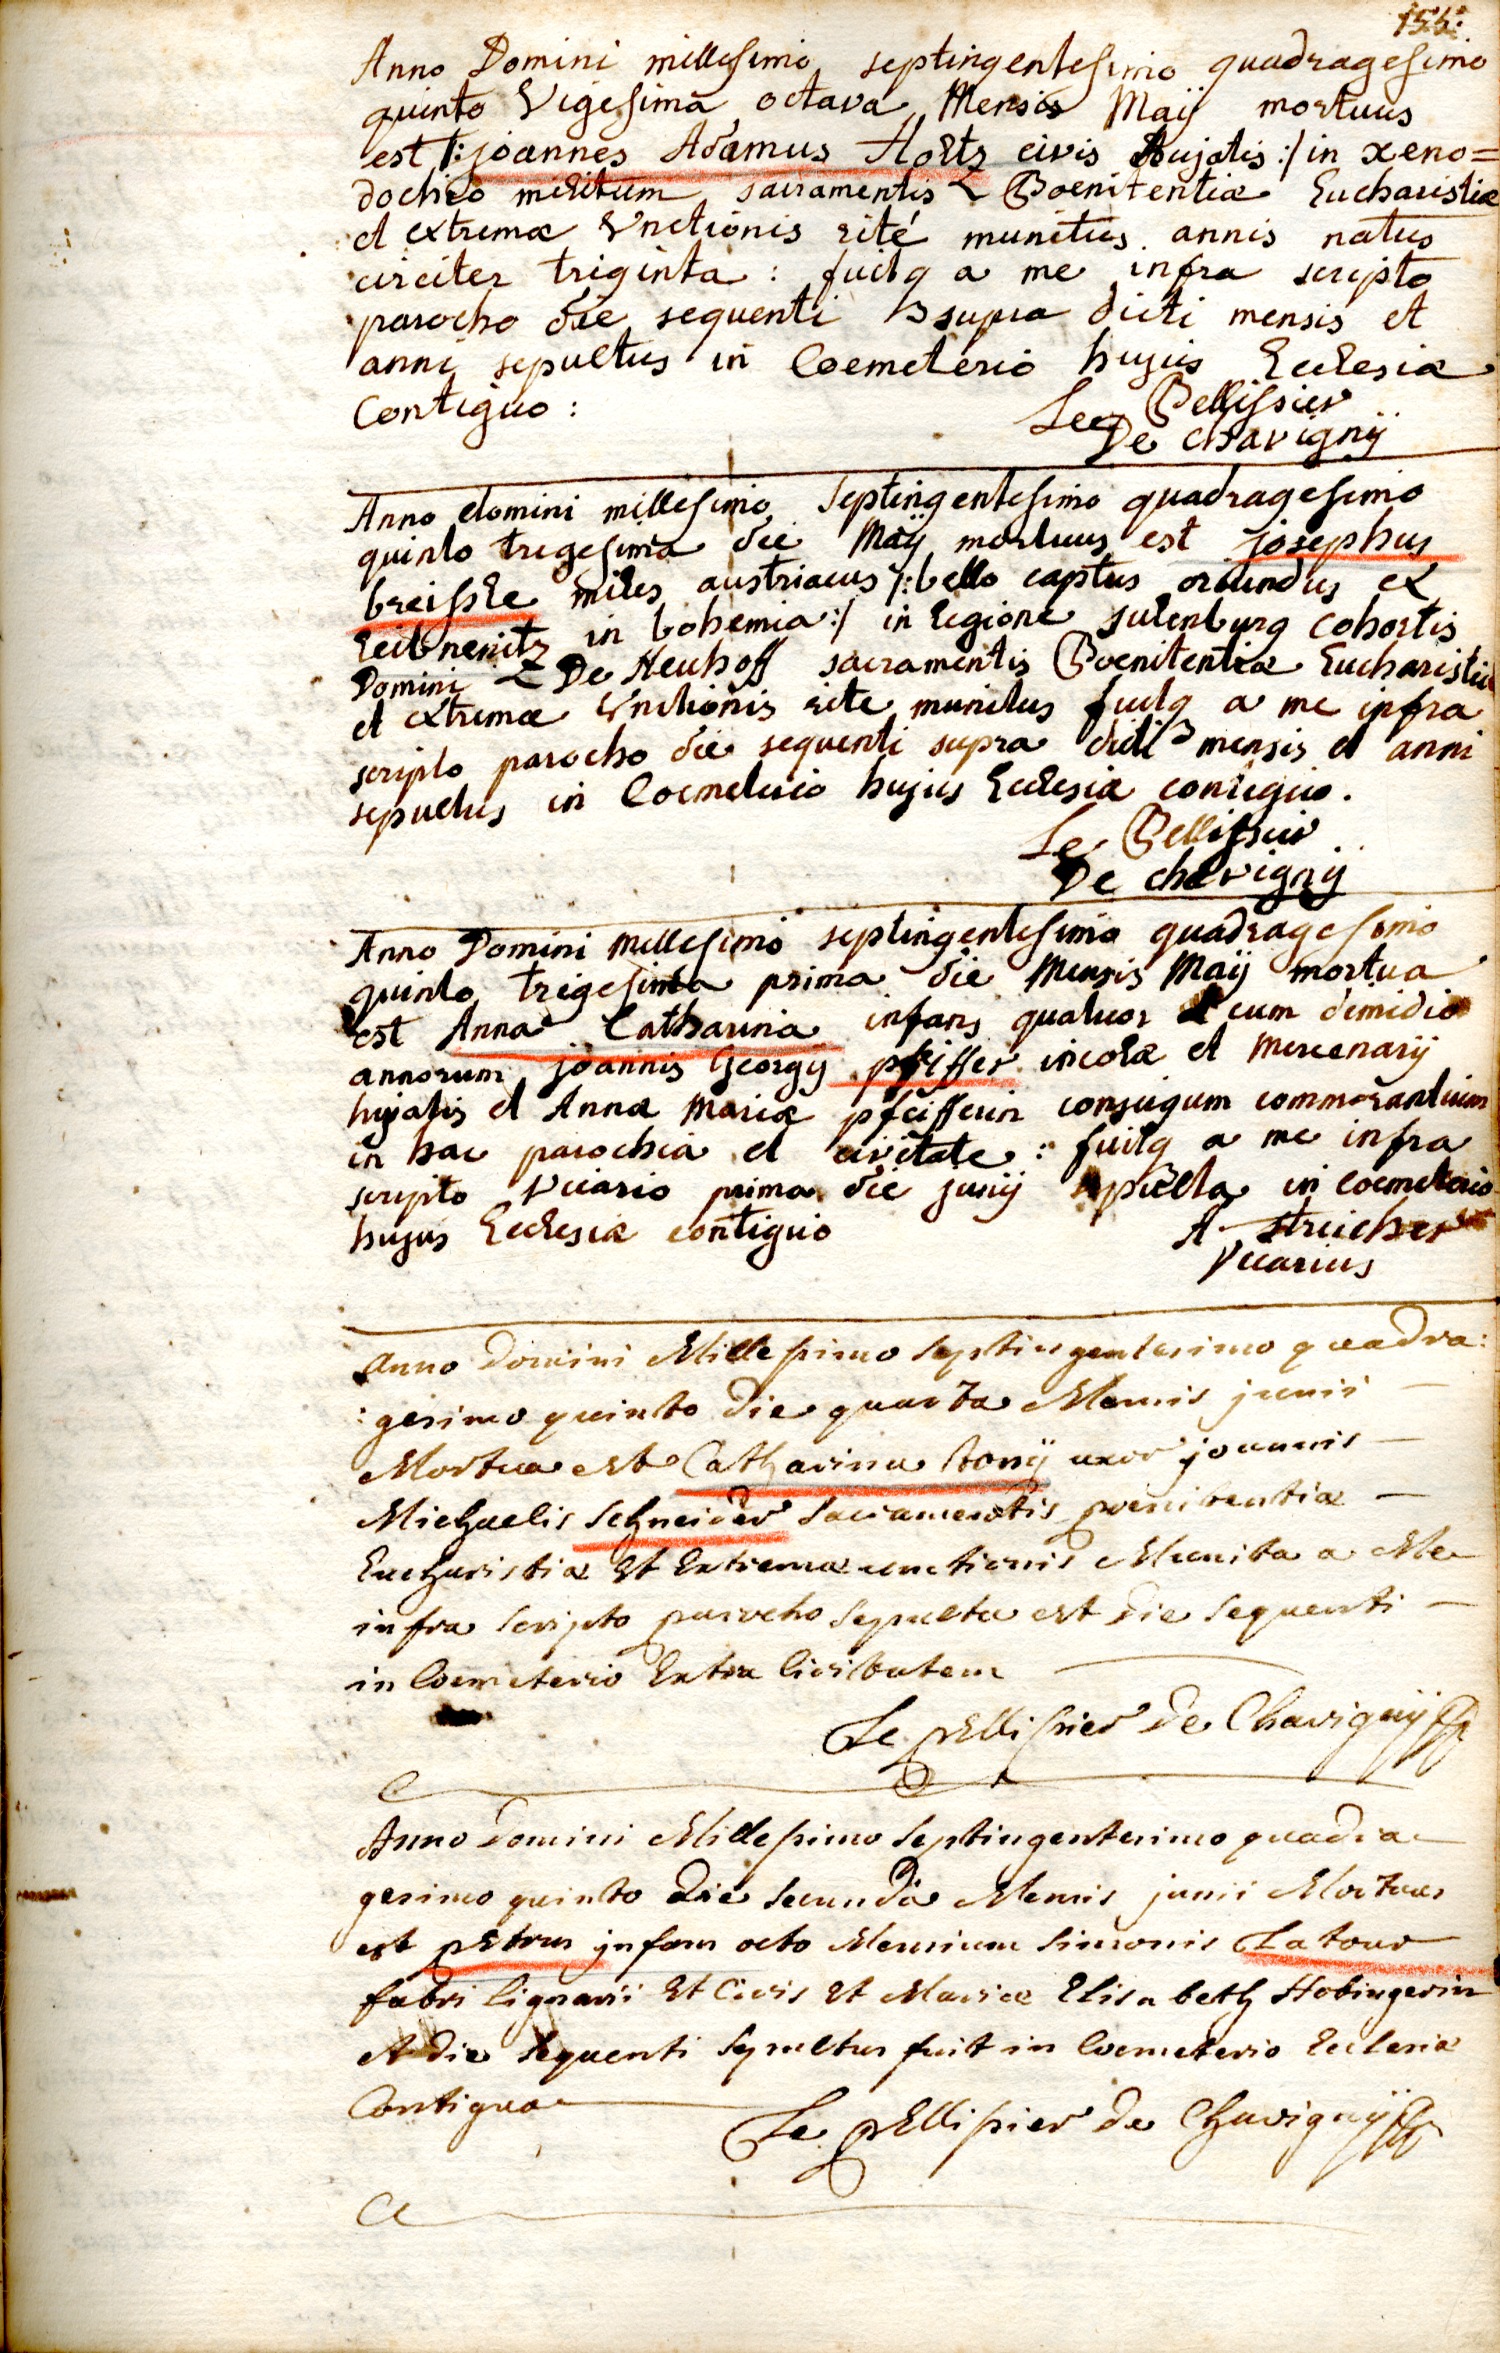 155.
Anno Domini millesimo septingentesimo quadragesimo
quinto Vigesima octava Mensis Maij mortuus
est /: joannes Adamus Hortz civis hujatis :/ in xeno=
docheo militum sacramentis Poenitentiæ Eucharistiæ
et extremæ Vnctionis rité munitus annis natus
circiter triginta : fuitq a me infra scripto
parocho die sequenti supra dicti mensis et
anni sepultus in Coemeterio hujus Ecclesiæ
Contiguo :
Le Pellissier
De chavignij
Anno domini millesimo Septingentesimo quadragesimo
quinto trigesima die Maij mortuus est josephus
breissle miles austriacus /: bello captus oriundus ex
leitneritz in bohemia :/ in legione cohortis
Domini De Neuhoff sacramentis Poenitentiæ Eucharistiæ
et extremæ Vnctionis rite munitus fuitq a me infra
scripto parocho die sequenti supra dicti mensis et anni
sepultus in Coemeterio hujus Ecclesiæ contiguo.
Le Pellissier
De chavignij
Anno Domini millesimo septingentesimo quadragesimo
quinto trigesima prima die Mensis Maij mortua
est Anna Catharina infans qutuor cum dimidio
annorum joannis Georgij pfeiffer incolæ et Mercenarij
hujatis et Annæ Mariæ pfeifferin conjugum commorantium
in hac parochia et civitate : fuitq a me infra
scripto Vicario prima die junij sepulta in coemeterio
hujus Ecclesiæ contiguo
A. streicher
Vicarius
Anno Domini Millesimo Septingentesimo quadra:
:gesimo quinto die quarta Mensis junii —
Mortua est Catharina tonij uxor joannis —
Michaelis Schneider Sacramentis poenitentiæ —
Eucharistiæ Et Extremæ unctionis Munita a Me
infra Scripto parocho Sepulta est die Sequenti —
in Coemeterio Extra Civitatem
Le pEllissier de Chavignij
Anno Domini Millesimo Septingentesimo quadra
gesimo quinto die Secunda Mensis junii Mortuus
est pEtrus jnfans octo Mensium Simonis Latour
fabri lignarii Et Civis Et Mariæ Elisabeth Hobingerin
et die Sequenti Sepultus fuit in Coemeterio Ecclesiæ
Contiguo
Le pEllissier de Chavignij